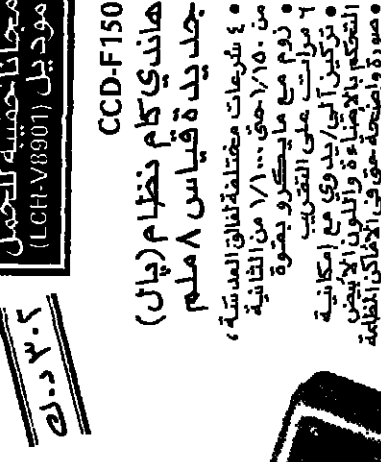 مجانا حقيبة للحمل
موديل (LCH-V8901)
CCD-F150
هاندي كام نظام (بال)
جديدة قياس ٨ ملم
• ٤ سرعات مختلفة لغالق العدسة ،
من ١/٥٠ حتى ١/١٠٠٠ من الثانية
• زوم مع مايكرو بقوة
٦ مرات على التقريب
• تركيز آلي/يدوي مع إمكانية
التحكم بالإضاءة واللون الأبيض
• صورة واضحة حتى في الأماكن المظلمة
٣٠٢ د.ك